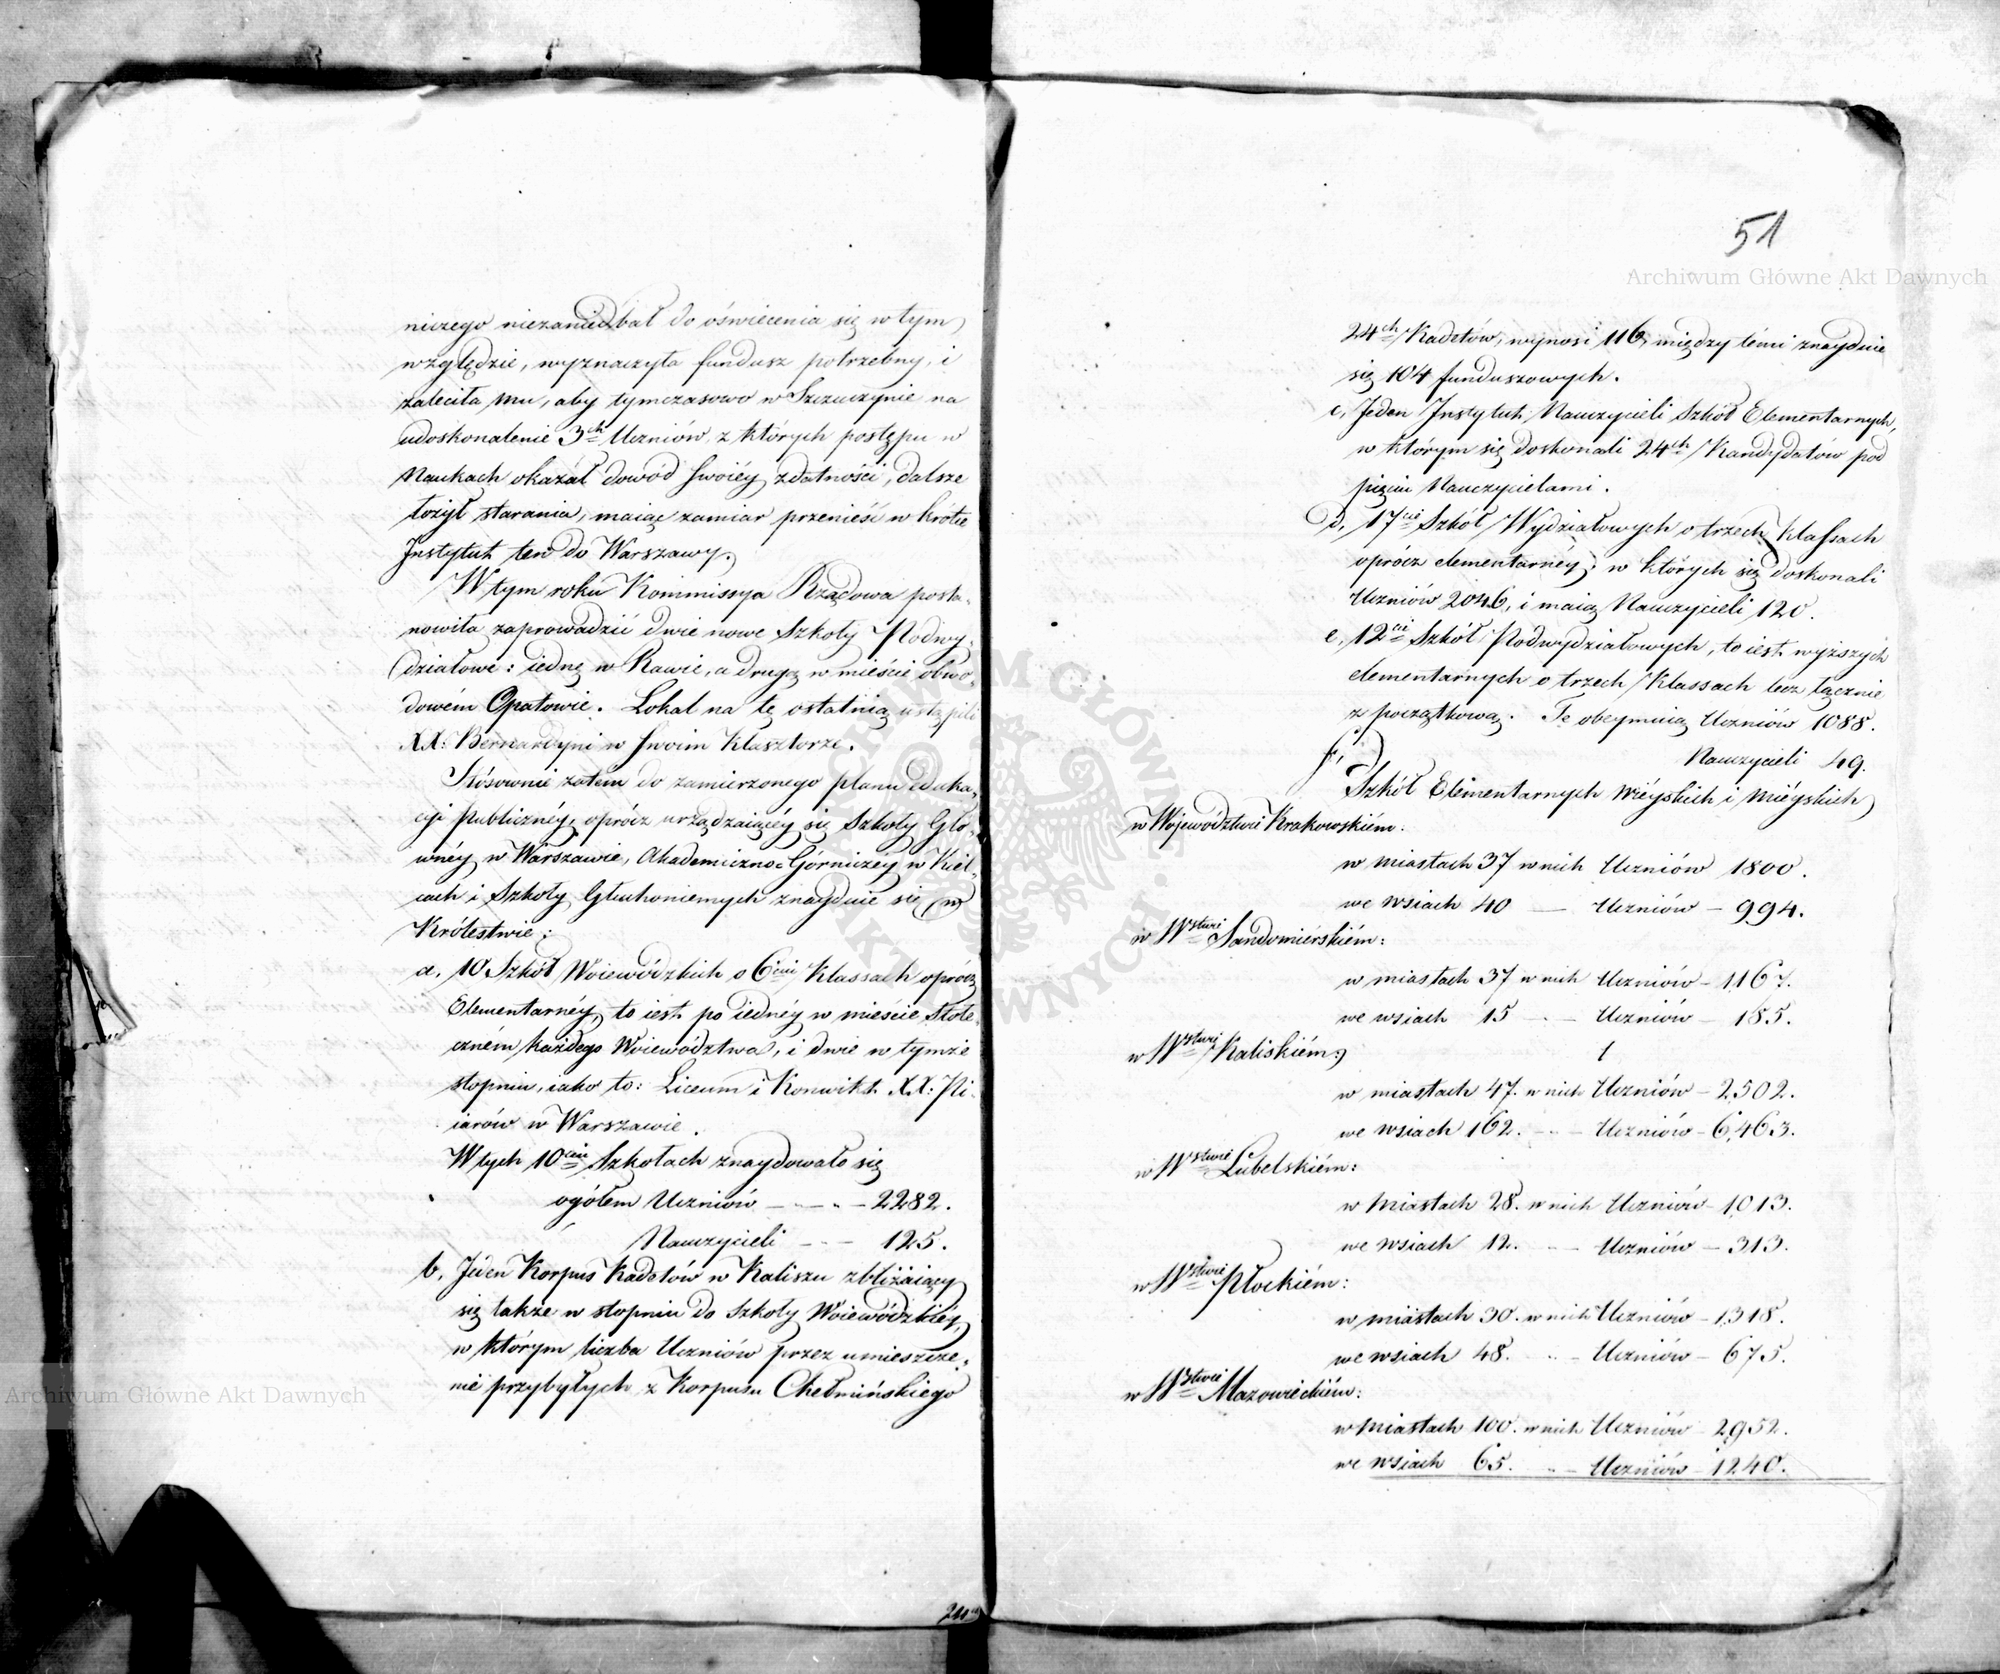 niczego niezaniedbał do oświecenia się w tym
względzie, wyznaczyła fundusz potrzebny, i
zaleciła mu, aby tymczasowo w Szczuczynie na
udoskonalenie 3ch Uczniów, z których postępu w
Naukach okazał dowód swoiéy zdatności, dalsze
łożył starania, maiąc zamiar przenieść w krótce
Instytut ten do Warszawy.
W tym roku Kommissya Rządowa posta-
nowiła zaprowadzić dwie nowe Szkoły Podwy-
działowe: iednę w Rawie, a drugą w mieście obwo-
dowém Opatowie. Lokal na tę ostatnią ustąpili
XX: Bernardyni w swoim Klasztorze.
Stósownie zatem do zamierzonego planu eduka-
cyi publicznéy, oprócz urządzaiącéy się Szkoły Głó-
wnéy w Warszawie, Akademiczno-Górniczéy w Kiel-
cach i Szkoły Głuchoniemych znayduie się w
Królestwie:
a, 10 Szkół Woiewódzkich o 6ciu Klassach oprócz
Elementarnéy, to iest po iednéy w mieście Stołe-
czném każdego Woiewództwa, i dwie w tymże
stopniu, iako to: Liceum i Konwikt XX: Pi-
iarów w Warszawie.
W tych 10ciu Szkołach znaydowało się
ogółem Uczniów — - - — 2282.
Nauczycieli - - — 125.
b, Jeden Korpus Kadetów w Kaliszu zbliżaiący
się także w stopniu do Szkoły Woiewódzkiéy,
w którym liczba Uczniów przez umieszcze-
nie przybyłych z Korpusu Chełmińskiego
51
Archiwum Główne Akt Dawnych
24ch Kadetów, wynosi 116, między témi znayduie
się 104 funduszowych.
c, Jeden Instytut Nauczycieli Szkół Elementarnych,
w którym się doskonali 24ch Kandydatów pod
pięciu Nauczycielami.
d, 17cie Szkół Wydziałowych o trzech Klassach
oprócz elementarnéy, w których się doskonali
Uczniów 2046, i maią Nauczycieli 120.
e, 12cie Szkół Podwydziałowych, to iest wyższych
elementarnych o trzech Klassach lecz łącznie
z początkową. Te obeymuią Uczniów 1088.
Nauczycieli 49.
f,
Szkół Elementarnych Wiéyskich i Miéyskich
w Województwie Krakowskiém:
w miastach 37 w nich Uczniów 1800.
we wsiach 40 — Uczniów — 994.
w Wztwie Sandomierskiém:
w miastach 37 w nich Uczniów — 1167.
we wsiach 15 - — Uczniów — 185.
w Wztwie Kaliskiém:
w miastach 47. w nich Uczniów — 2502.
we wsiach 162. - - — Uczniów — 6,463.
w Wztwie Lubelskiém:
w Miastach 28. w nich Uczniów — 1,013.
we wsiach 12. - — Uczniów — 313.
w Wztwie Płockiém:
w miastach 30. w nich Uczniów — 1,318.
we wsiach 48. - — Uczniów — 675.
w Wztwie Mazowieckiém:
w miastach 100. w nich Uczniów — 2952.
we wsiach 65. - — Uczniów — 1240.
Archiwum Główne Akt Dawnych
ARCHIWUM GŁÓWNE AKT DAWNYCH